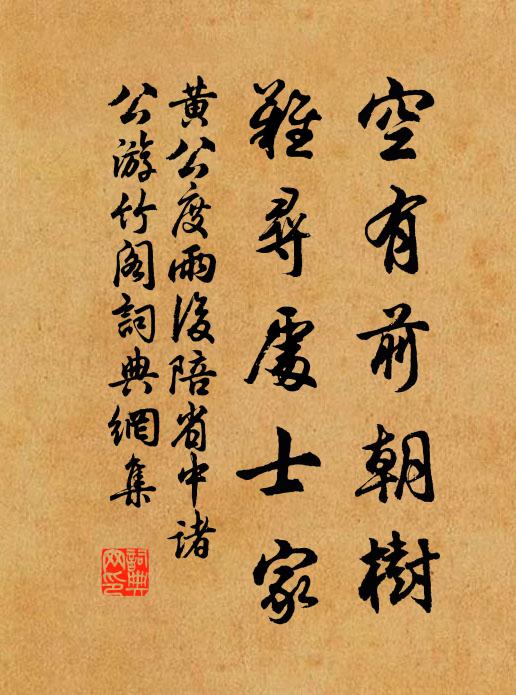 空有前朝樹
難尋處士家
黄公度雨後陪省中諸
公游竹閣詞典網集